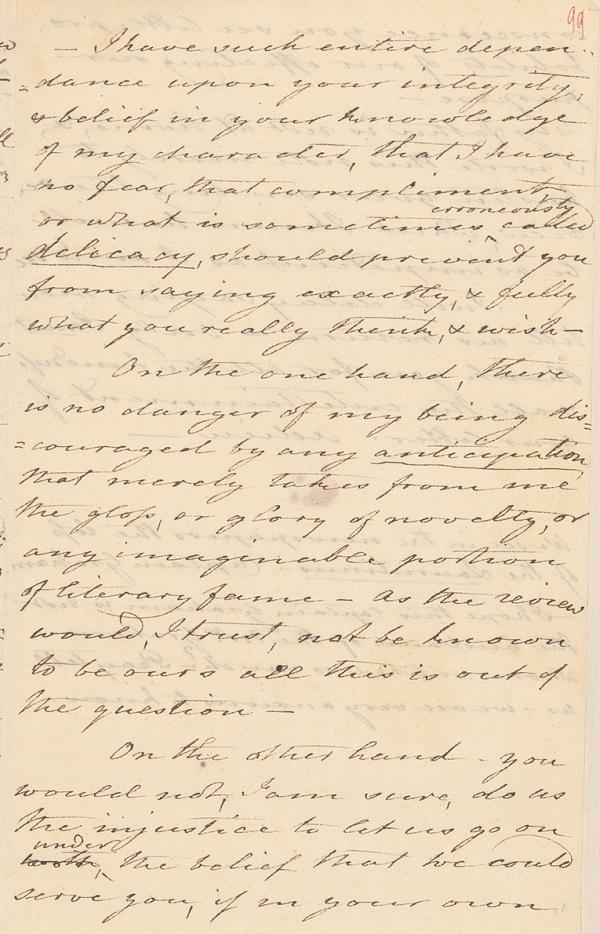 99
— I have such entire depen-
=dance upon your integrity,
& belief in your knowledge
of my character, that I have
no fear, that compliment,
erroneously
or what is sometimes ^ called
delicacy, should prevent you
from saying exactly, & fully
what you really think, & wish—
On the one hand, there
is no danger of my being dis=
=couraged by any anticipation,
that merely takes from me
the gloss, or glory of novelty, or
any imaginable portion
of literary fame — as the review
would, I trust, not be known
to be ours all this is out of
the question —
On the other hand - you
would not, I am sure, do us
the injustice to let us go on
under
^ the belief that we could
serve you, if in your own